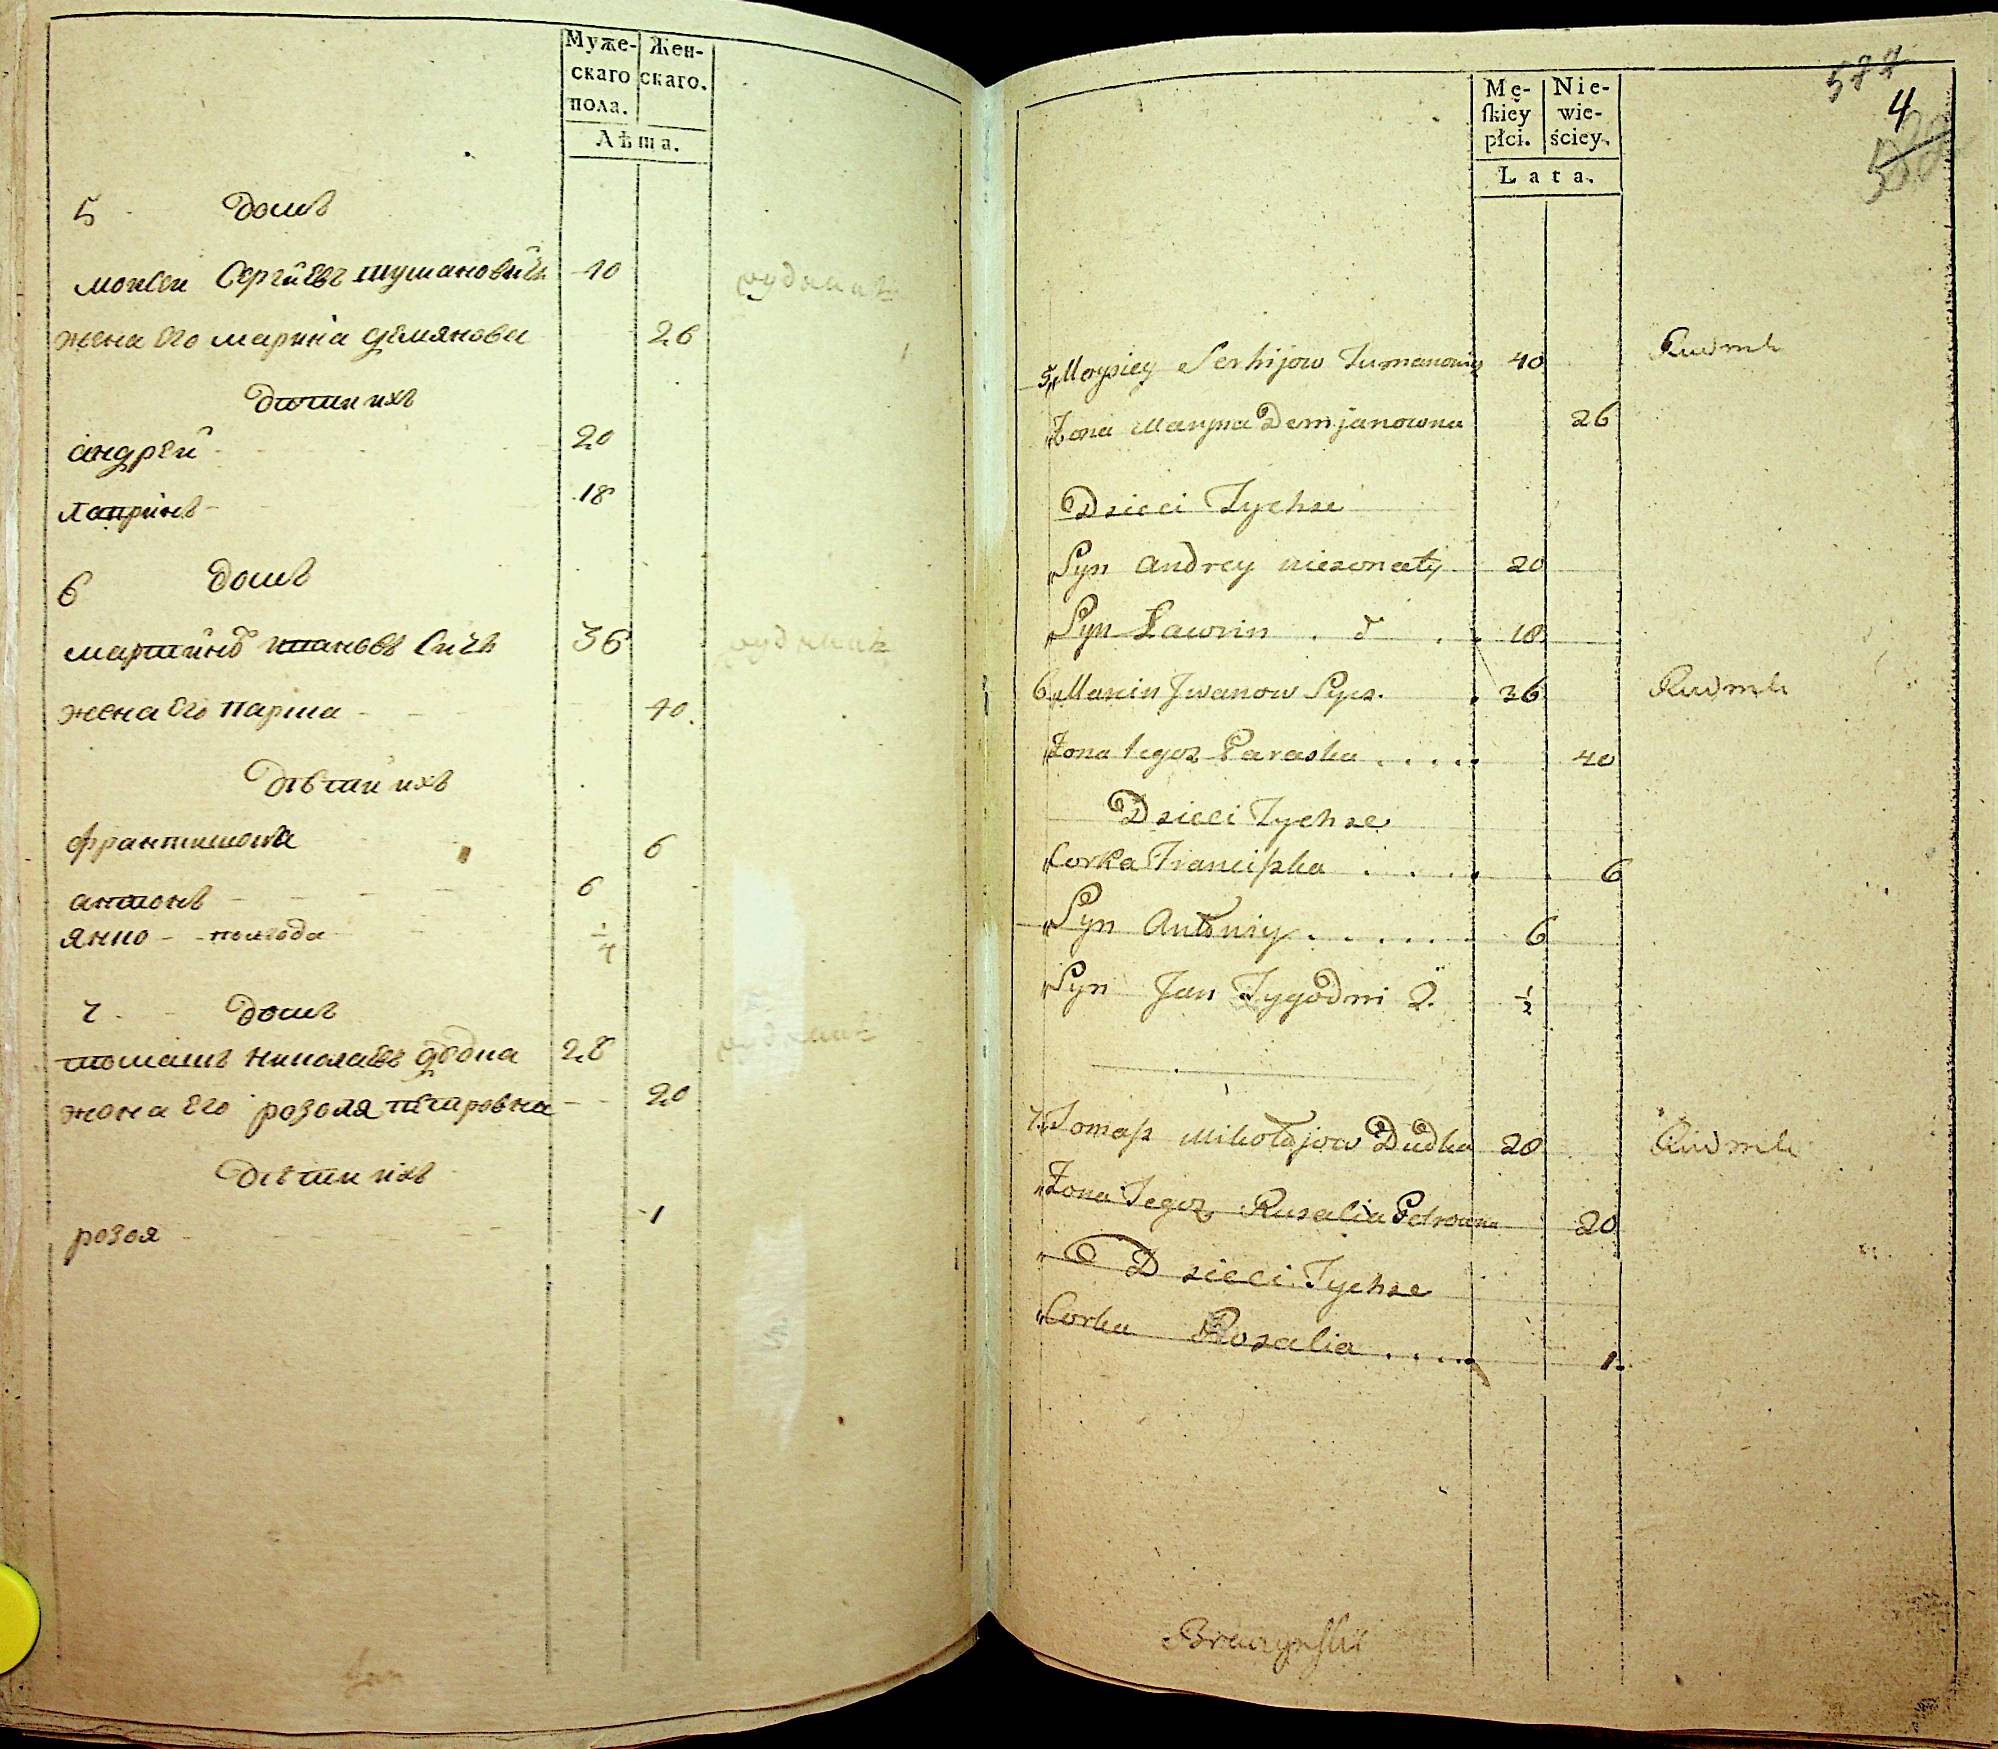 Муже-
скаго
пола.
Жен-
скаго.
Лѣта.
5 домъ
моисеи Сергиевъ тумановичъ 40 рудникъ
жена его марина демянова 26
дети ихъ
андрей 20
лавринъ 18
6 домъ
мартинъ ивановъ Сичъ 36 рудникъ
жена его параска 40
дѣти ихъ
франтишка 6
антонъ 6
янко - полгода
7 домъ
томашъ николаевъ дудка 28 рудникъ
жена его розоля петровна 20
дѣти ихъ
розоля 1
Jan
577
4
Mę-
ſkiéy
płci.
Nie-
wie-
ściey.
Lata.
5 Moysiey Serhijow Tumanowicz 40 Rudnik
Żona Maryna Demjanowna 26
Dzieci Tychze
Syn Andrey niezonaty 20
Syn Ławrin . d . 18
6 Marcin Jwanow Sycz. 36 Rudnik
Żona tegoz Paraska . . . . . 40
Dzieci Tychze
Corka Franciſzka . . . . 6
Syn Antoniy . . . . . . 6
Syn Jan Tygodni 2. ½
7. Tomaſz Mikołajow Dudka 28 Rudnik
Żona Tegoz Ruzalia Petrowna 20
Dzieci Tychze
Corka Rozalia . . . . 1.